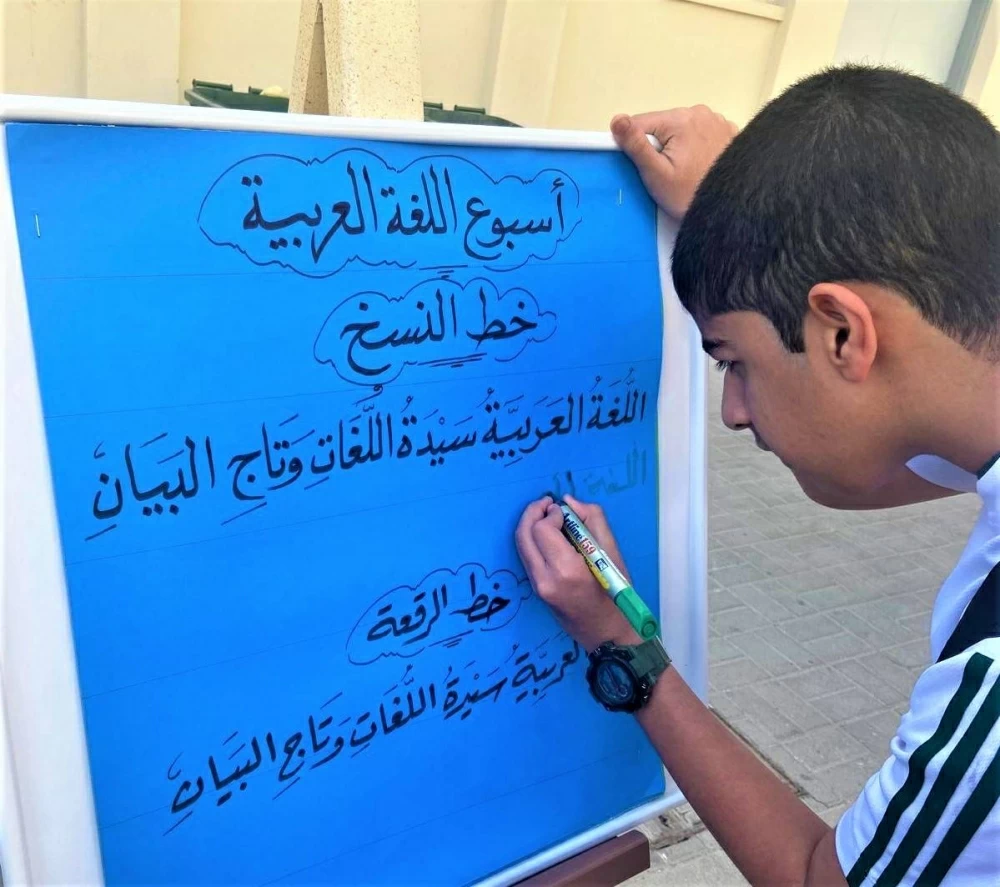 أسبوع اللغة العربية
خط النسخ
اللُّغَةُ العَرَبِيَّةُ سَيِّدَةُ اللُّغَاتِ وَتَاجِ البَيَانِ
اللغة
خط الرقعة
العَرَبِيَّةُ سَيِّدَةُ اللُّغَاتِ وَتَاجِ البَيَانِ
Artline 159